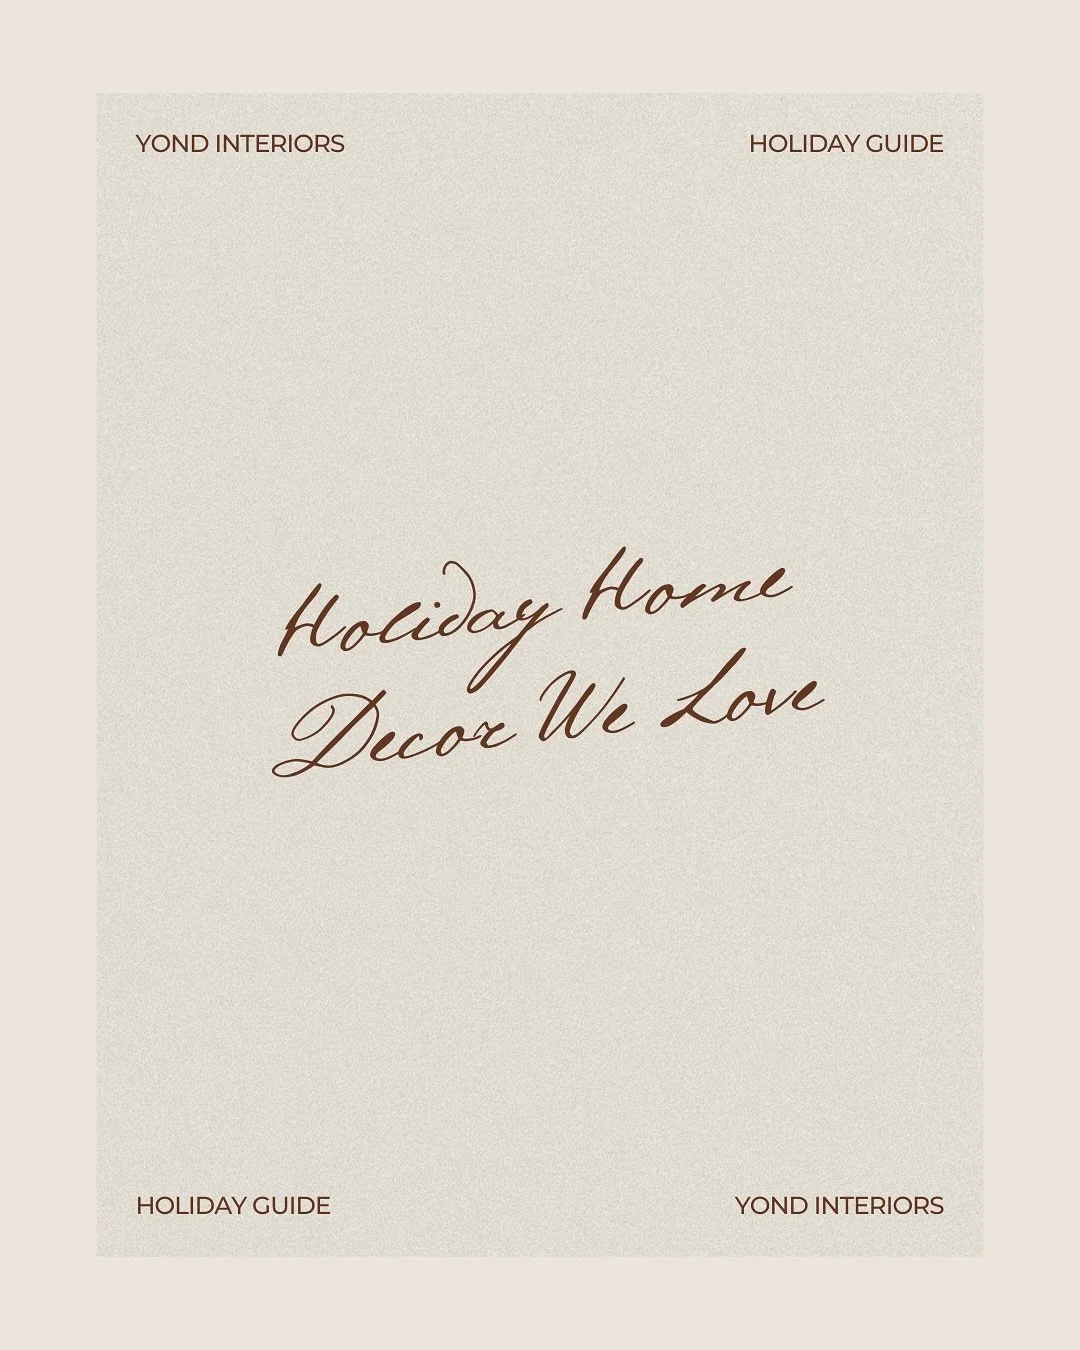 YOND INTERIORS
HOLIDAY GUIDE
Holiday Home
Decor We Love
HOLIDAY GUIDE
YOND INTERIORS